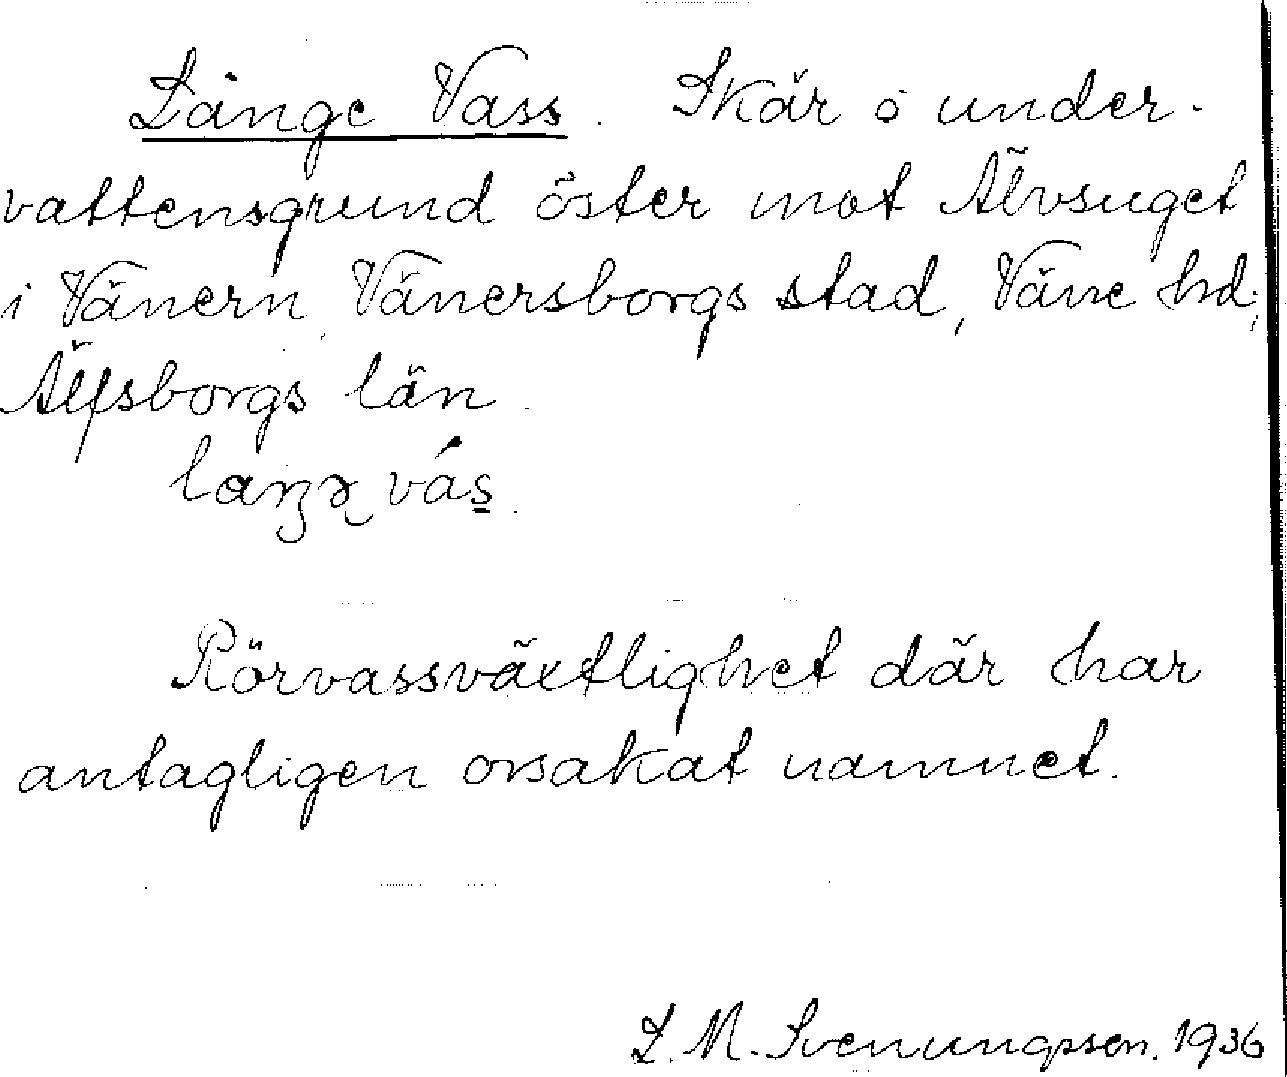 Långe Vass. Skär o under-
vattensgrund öster mot Älvsuget
i Vänern, Vänersborgs stad, Väne hd,
Älfsborgs län.
laŋə vás.
Rörvassväxtlighet där har
antagligen orsakat namnet.
L. M. Svenungsson. 1936